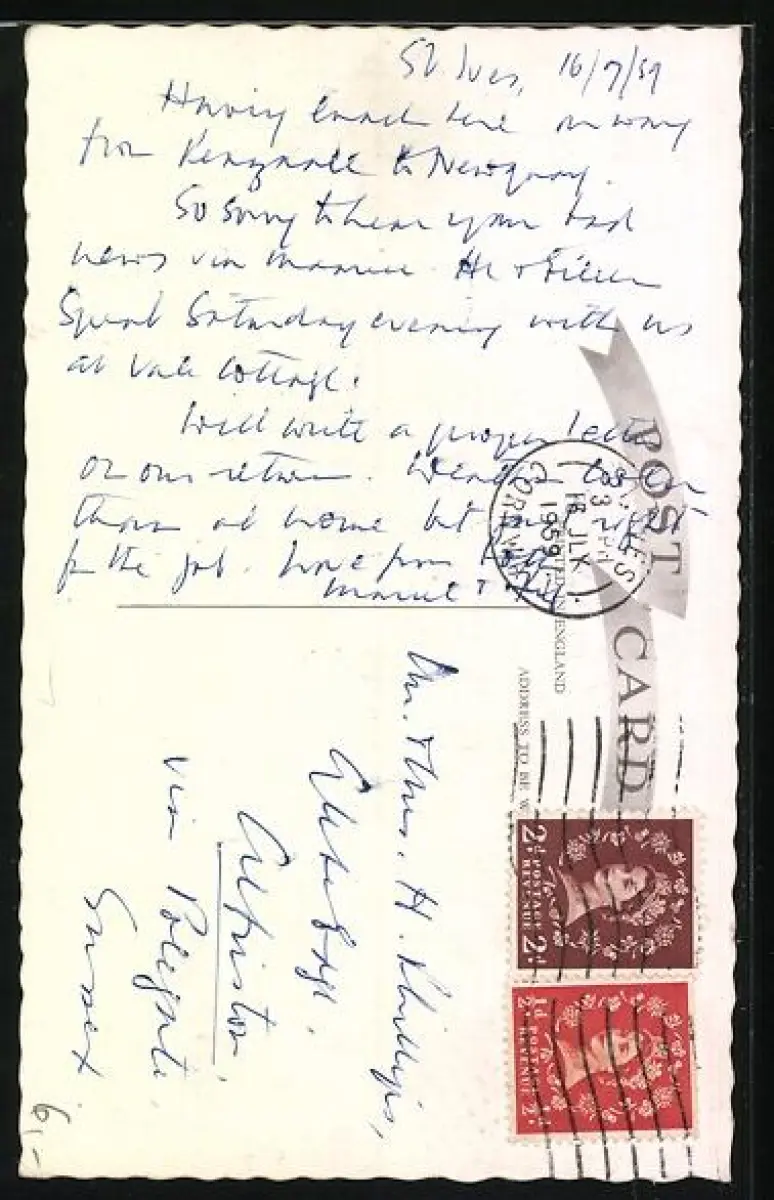 St Ives, 16/7/59
Having lunch here on way
from Penzance to Newquay.
So sorry to hear your bad
news via Maurice. He & Eileen
Spent Saturday evening with us
at Vale Cottage.
Will write a proper letter
on our return. Weather
than at home but just right
for the job. Love from
POST CARD
PRINTED IN ENGLAND
ADDRESS TO BE W
ST. IVES
CORNWALL
3 PM
16 JLY
1959
Mr. & Mrs. H. Phillips,
Alfriston,
via Polegate,
Sussex
2d POSTAGE REVENUE 2d
½d POSTAGE REVENUE ½d
6,-